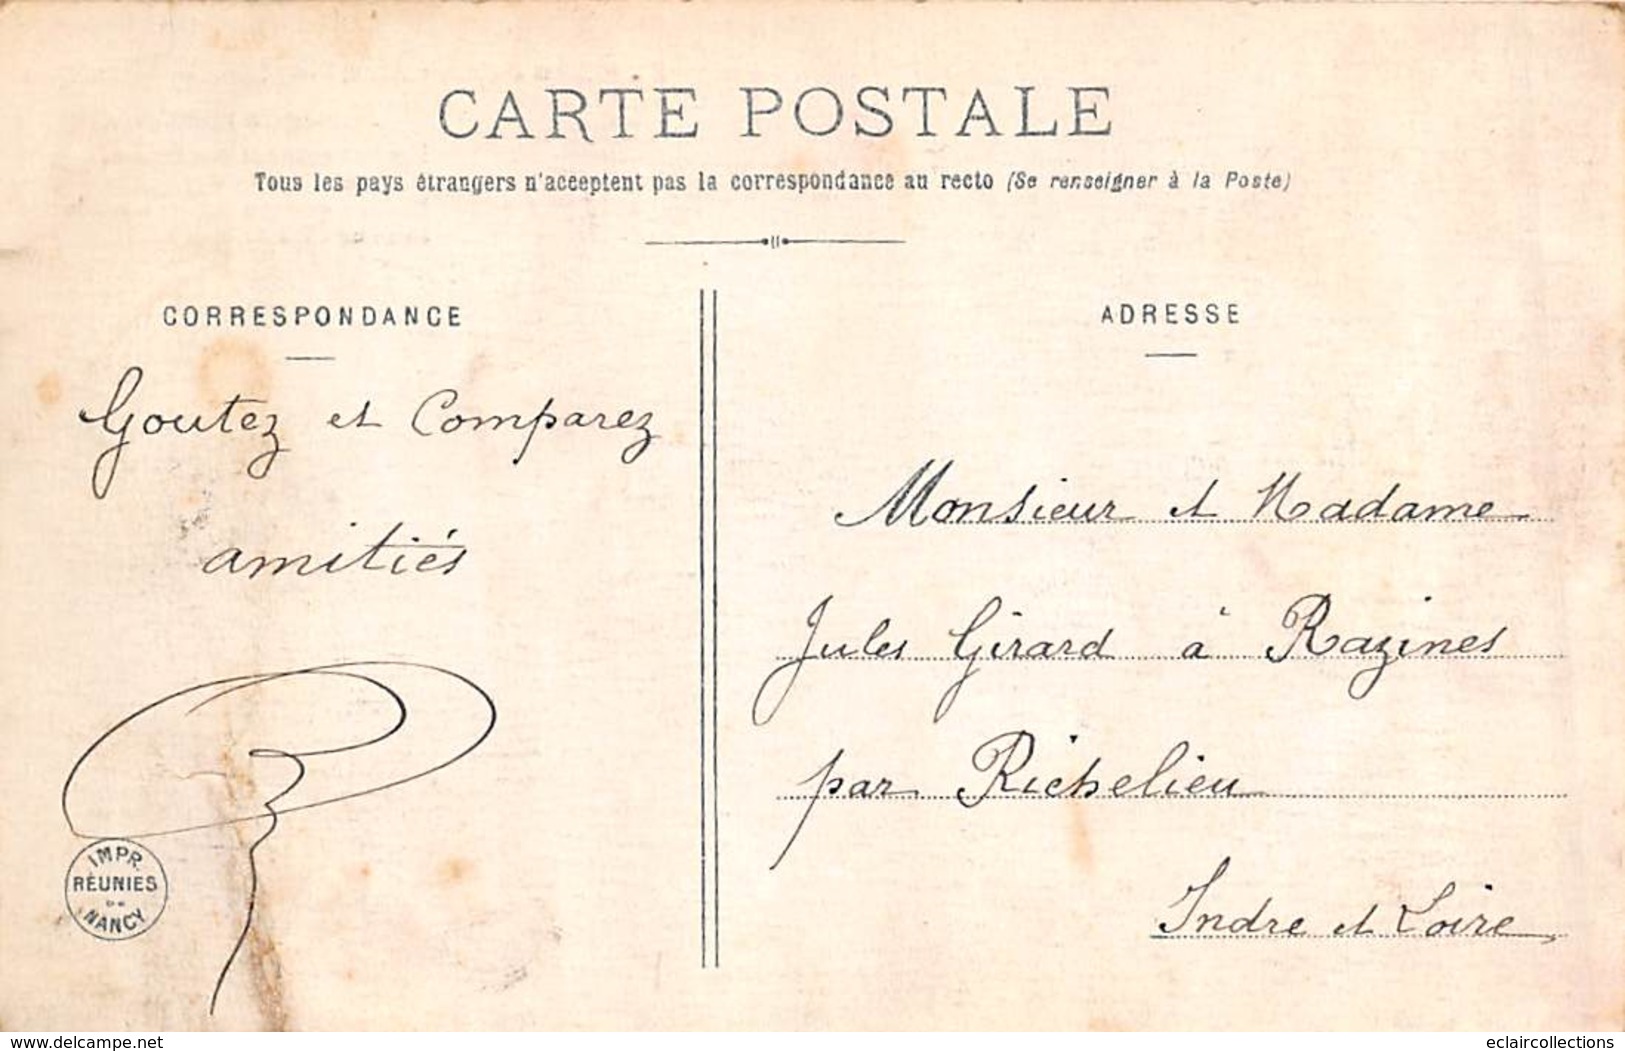 CARTE POSTALE
Tous les pays étrangers n'acceptent pas la correspondance au recto (Se renseigner à la Poste)
CORRESPONDANCE
Goutez et Comparez
amitiés
IMPR.
RÉUNIES
DE
NANCY
ADRESSE
Monsieur et Madame
Jules Girard à Razines
par Richelieu
Indre et Loire
www.delcampe.net
eclaircollections